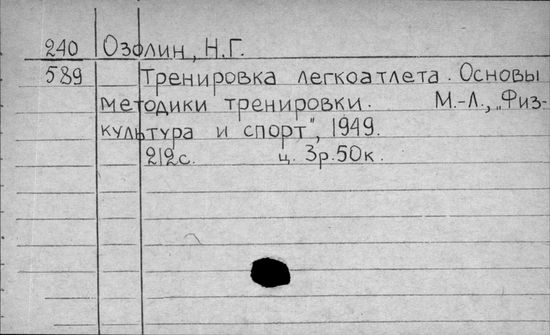 240 Озолин, Н.Г.
589 Тренировка легкоатлета. Основы
методики тренировки. М.-Л., „Физ-
культура и спорт", 1949.
212с. ц. 3р.50к.